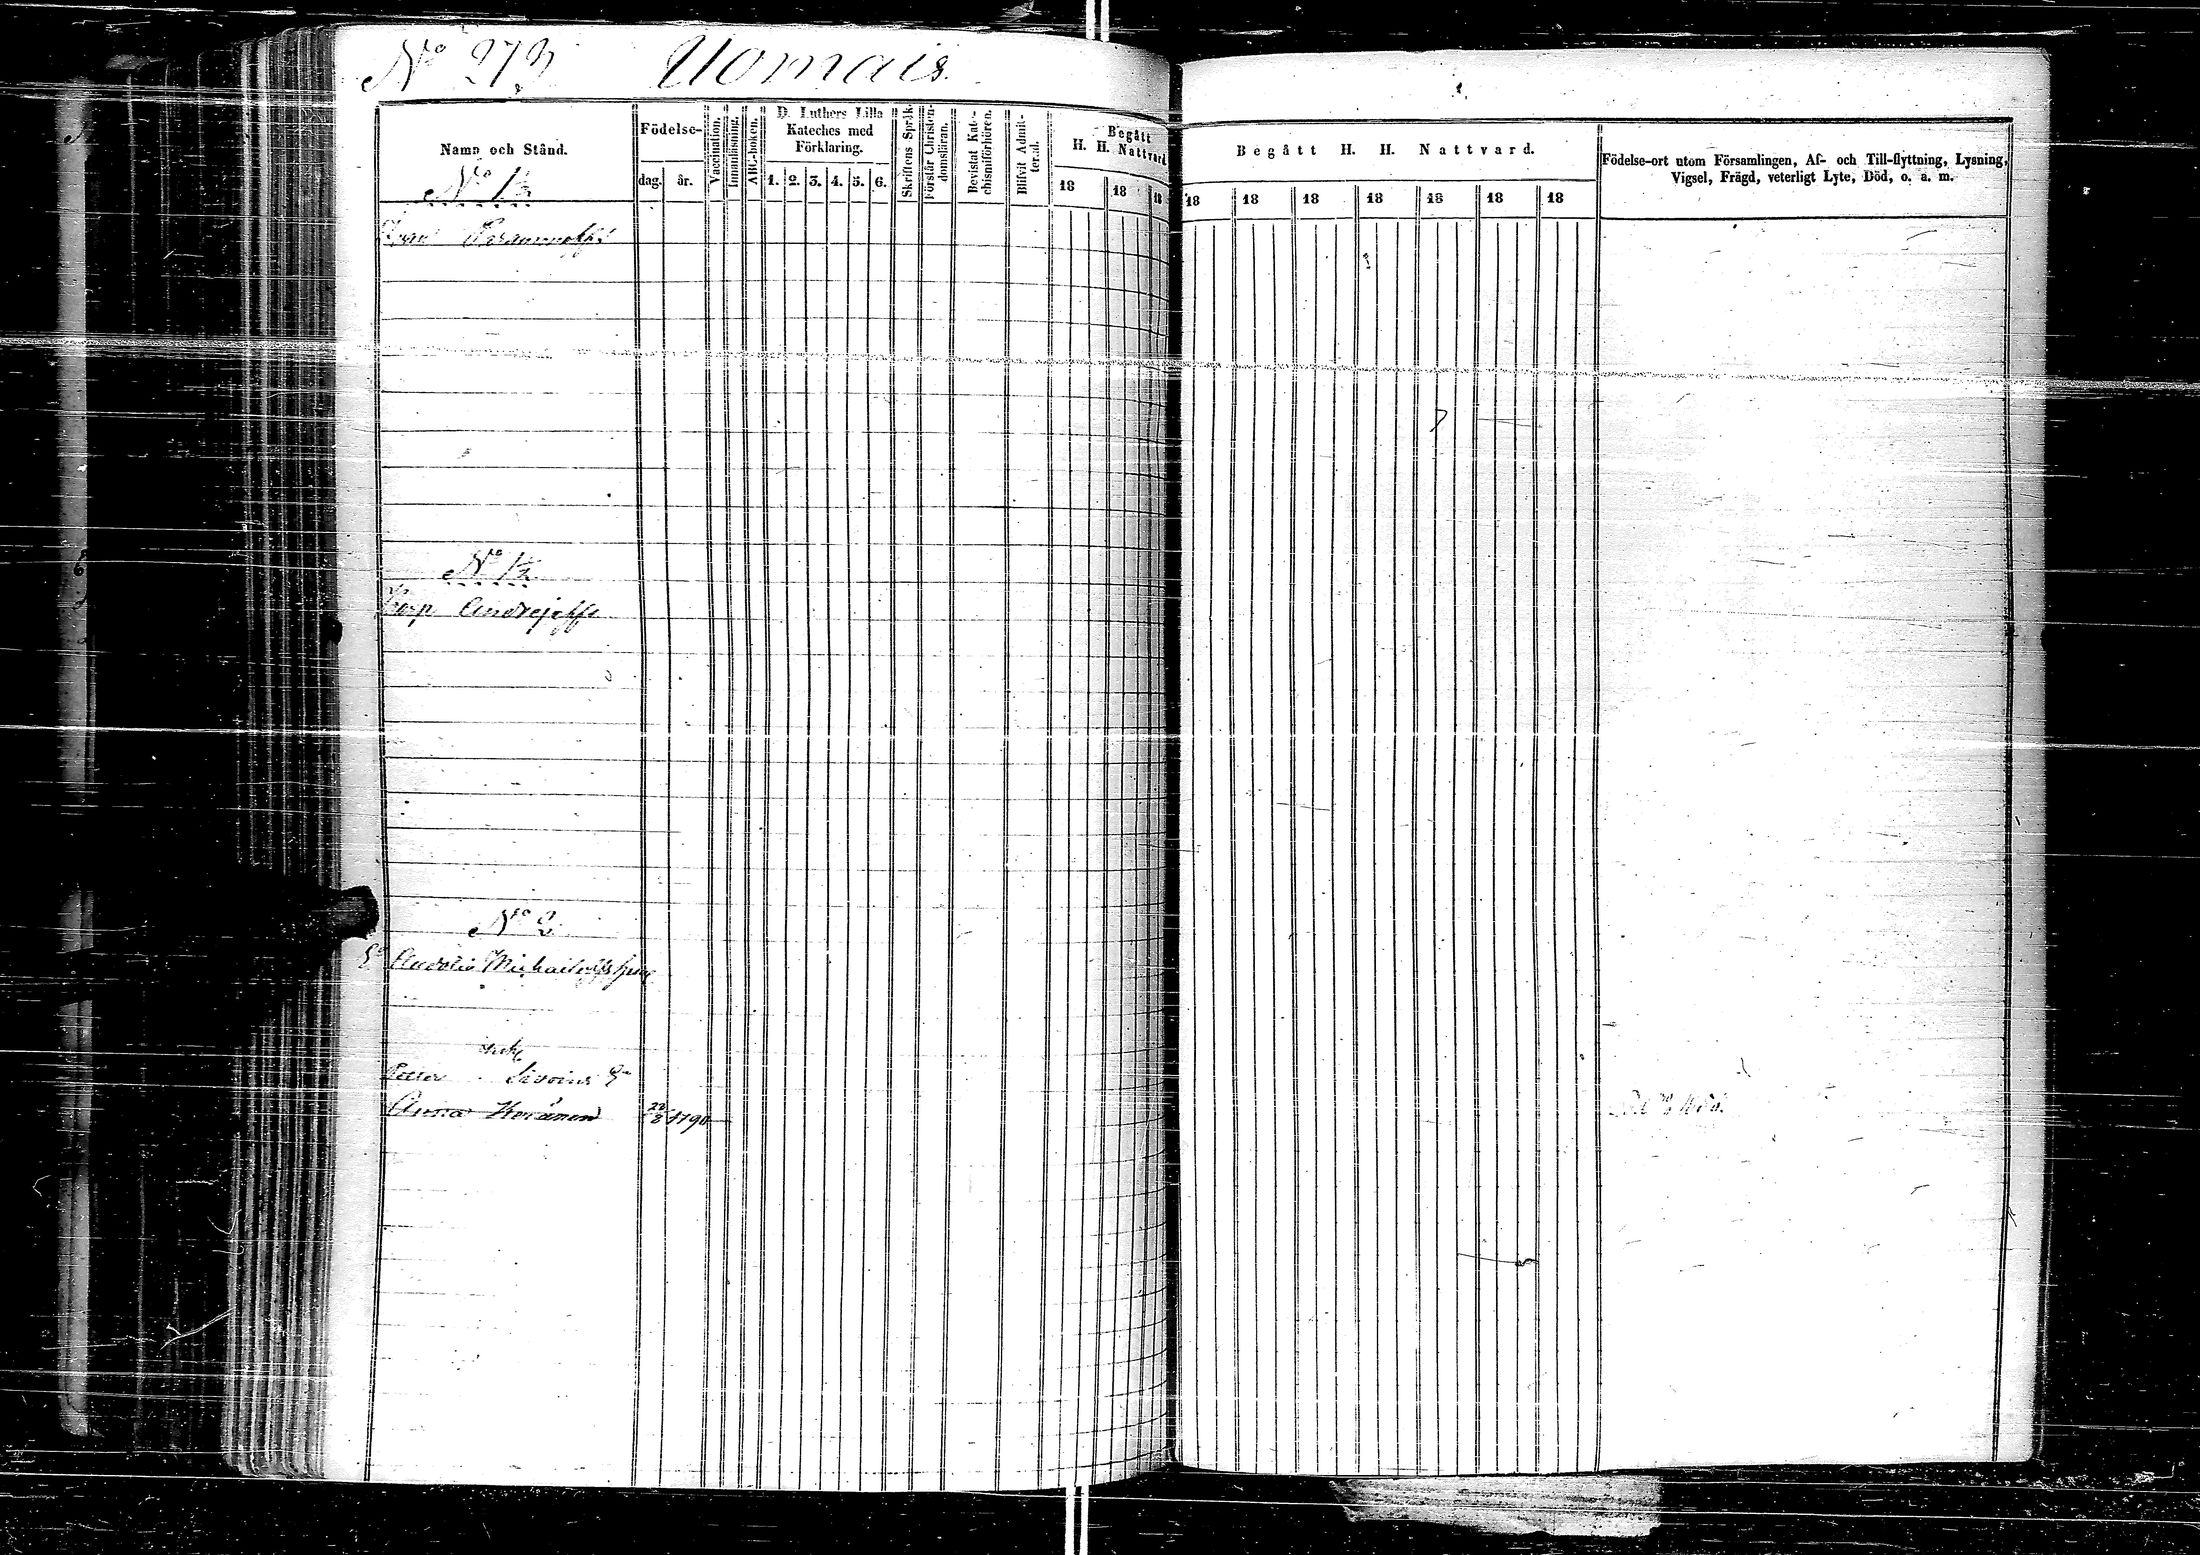 No 273 Uomais.
Namn och Stånd.
Födelse-
dag. år.
Vaccination.
Innanläsning.
ABC-boken.
D. Luthers Lilla
Kateches med
Förklaring.
1. 2. 3. 4. 5. 6.
Skriftens Språk
Förstår Christen-
domsläran.
Bevistat Kate-
chismiförhören.
Blifvit Admit-
terad.
Begått
H. H. Nattvard
18 18 18
Begått H. H. Nattvard.
18 18 18 18 18 18 18
Födelse-ort utom Församlingen, Af- och Till-flyttning, Lysning,
Vigsel, Frägd, veterligt Lyte, Död, o. a. m.
No 1/2
No 1/2
Karp Andrejeff
No 2
Petter
Anna 22/8 1790